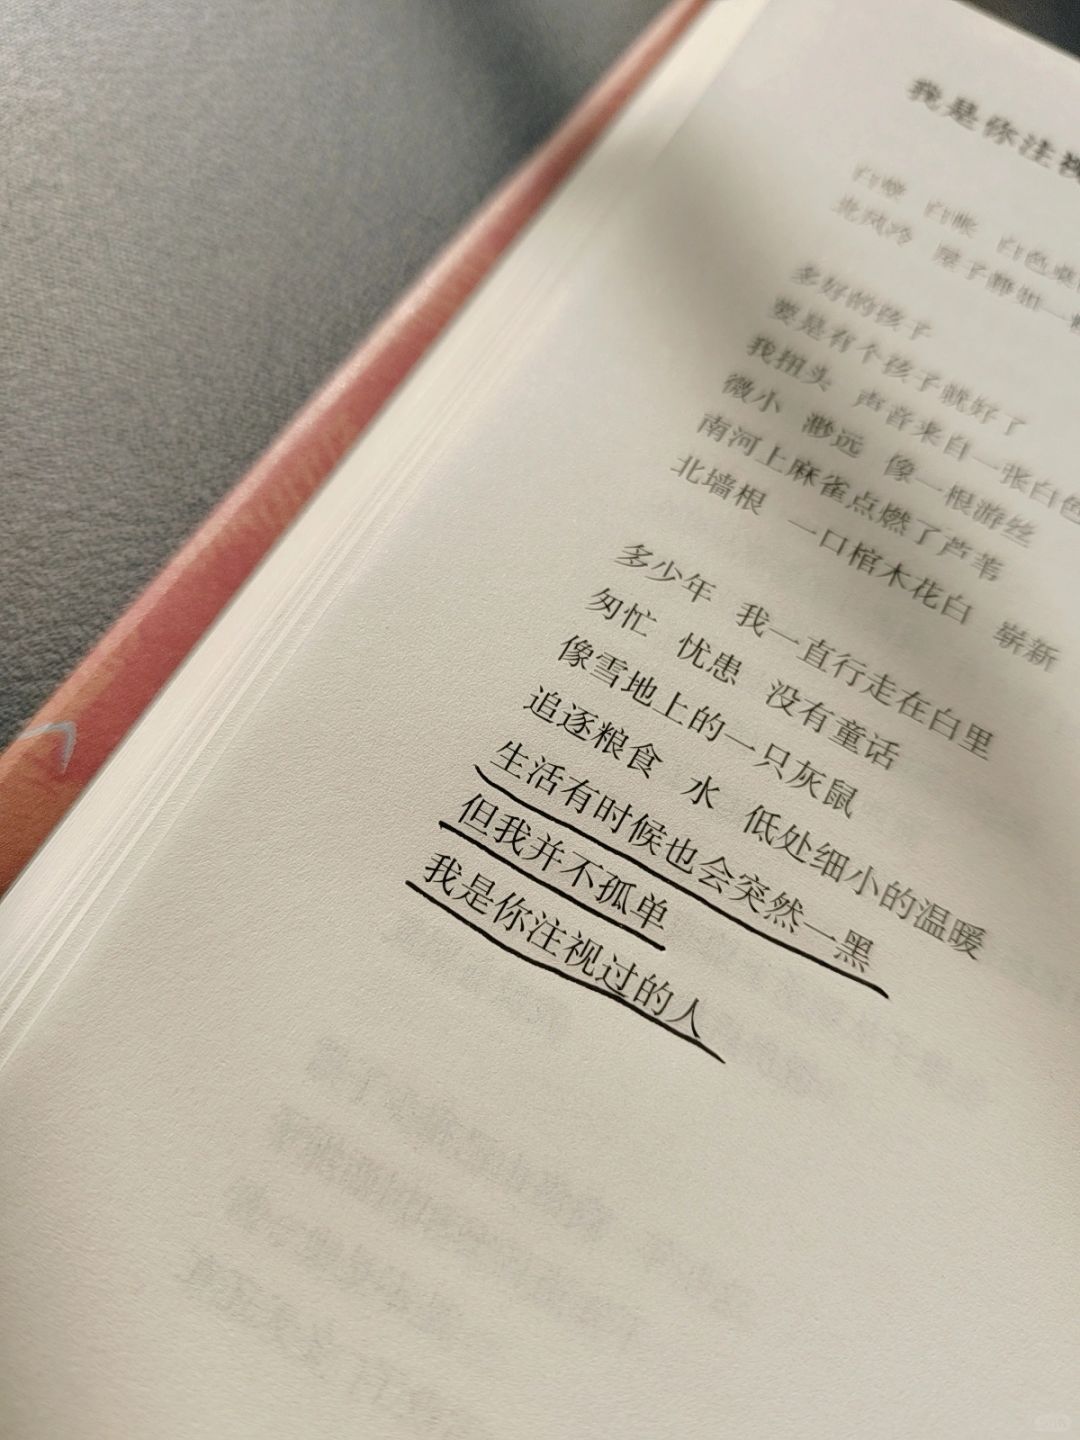 我是你注视
白幔 白帐 白色桌
北风冷 屋子静如一
多好的孩子
要是有个孩子就好了
我扭头 声音来自一张白色
微小 渺远 像一根游丝
南河上麻雀点燃了芦苇
北墙根 一口棺木花白 崭新
多少年 我一直行走在白里
匆忙 忧患 没有童话
像雪地上的一只灰鼠
追逐粮食 水 低处细小的温暖
生活有时候也会突然一黑
但我并不孤单
我是你注视过的人